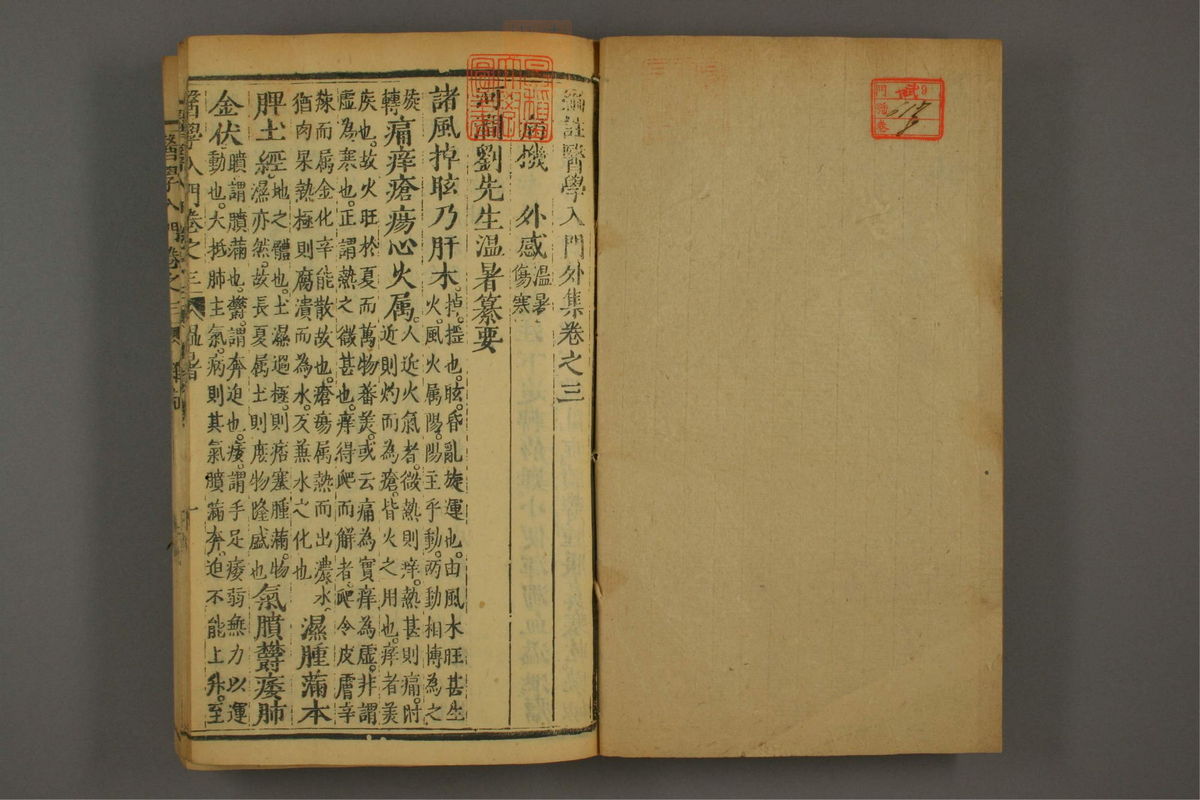 編註醫學入門外集卷之三
病機 外感 溫暑 傷寒
河間劉先生溫暑纂要
諸風掉眩乃肝木 掉搖也眩昏亂旋運也由風木旺甚生
火風火属陽陽主乎動两動相摶為之
旋轉 痛痒瘡瘍心火属 人近火氣者微熱則痒熱甚則痛附
近則灼而為瘡皆火之用也痒者美
疾也故火旺於夏而萬物蕃美或云痛為實痒為虛非謂
虛為寒也正謂熱之微甚也痒得爬而解者爬令皮膚辛
辣而属金化辛能散故也瘡瘍属熱而出濃水
猶肉果熱極則腐潰而為水反兼水之化也 濕腫滿本
脾土經 地之體也土濕過極則痞塞腫滿物
濕亦然故長夏属土則庶物隆盛也 氣膹欝痿肺
金伏 膹謂膹滿也欝謂奔迫也痿謂手足痿弱無力以運
動也大抵肺主氣病則其氣膹滿奔迫不能上升至
醫學入門卷之三 溫暑 一